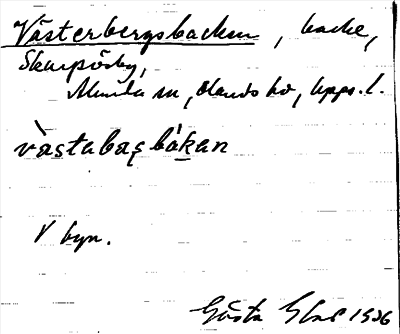 Västerbergsbacken, backe,
Skarpörby,
Almunge sn, Olands hd, Upps. l.
västabærgbákan
V byn.
Gösta 1936